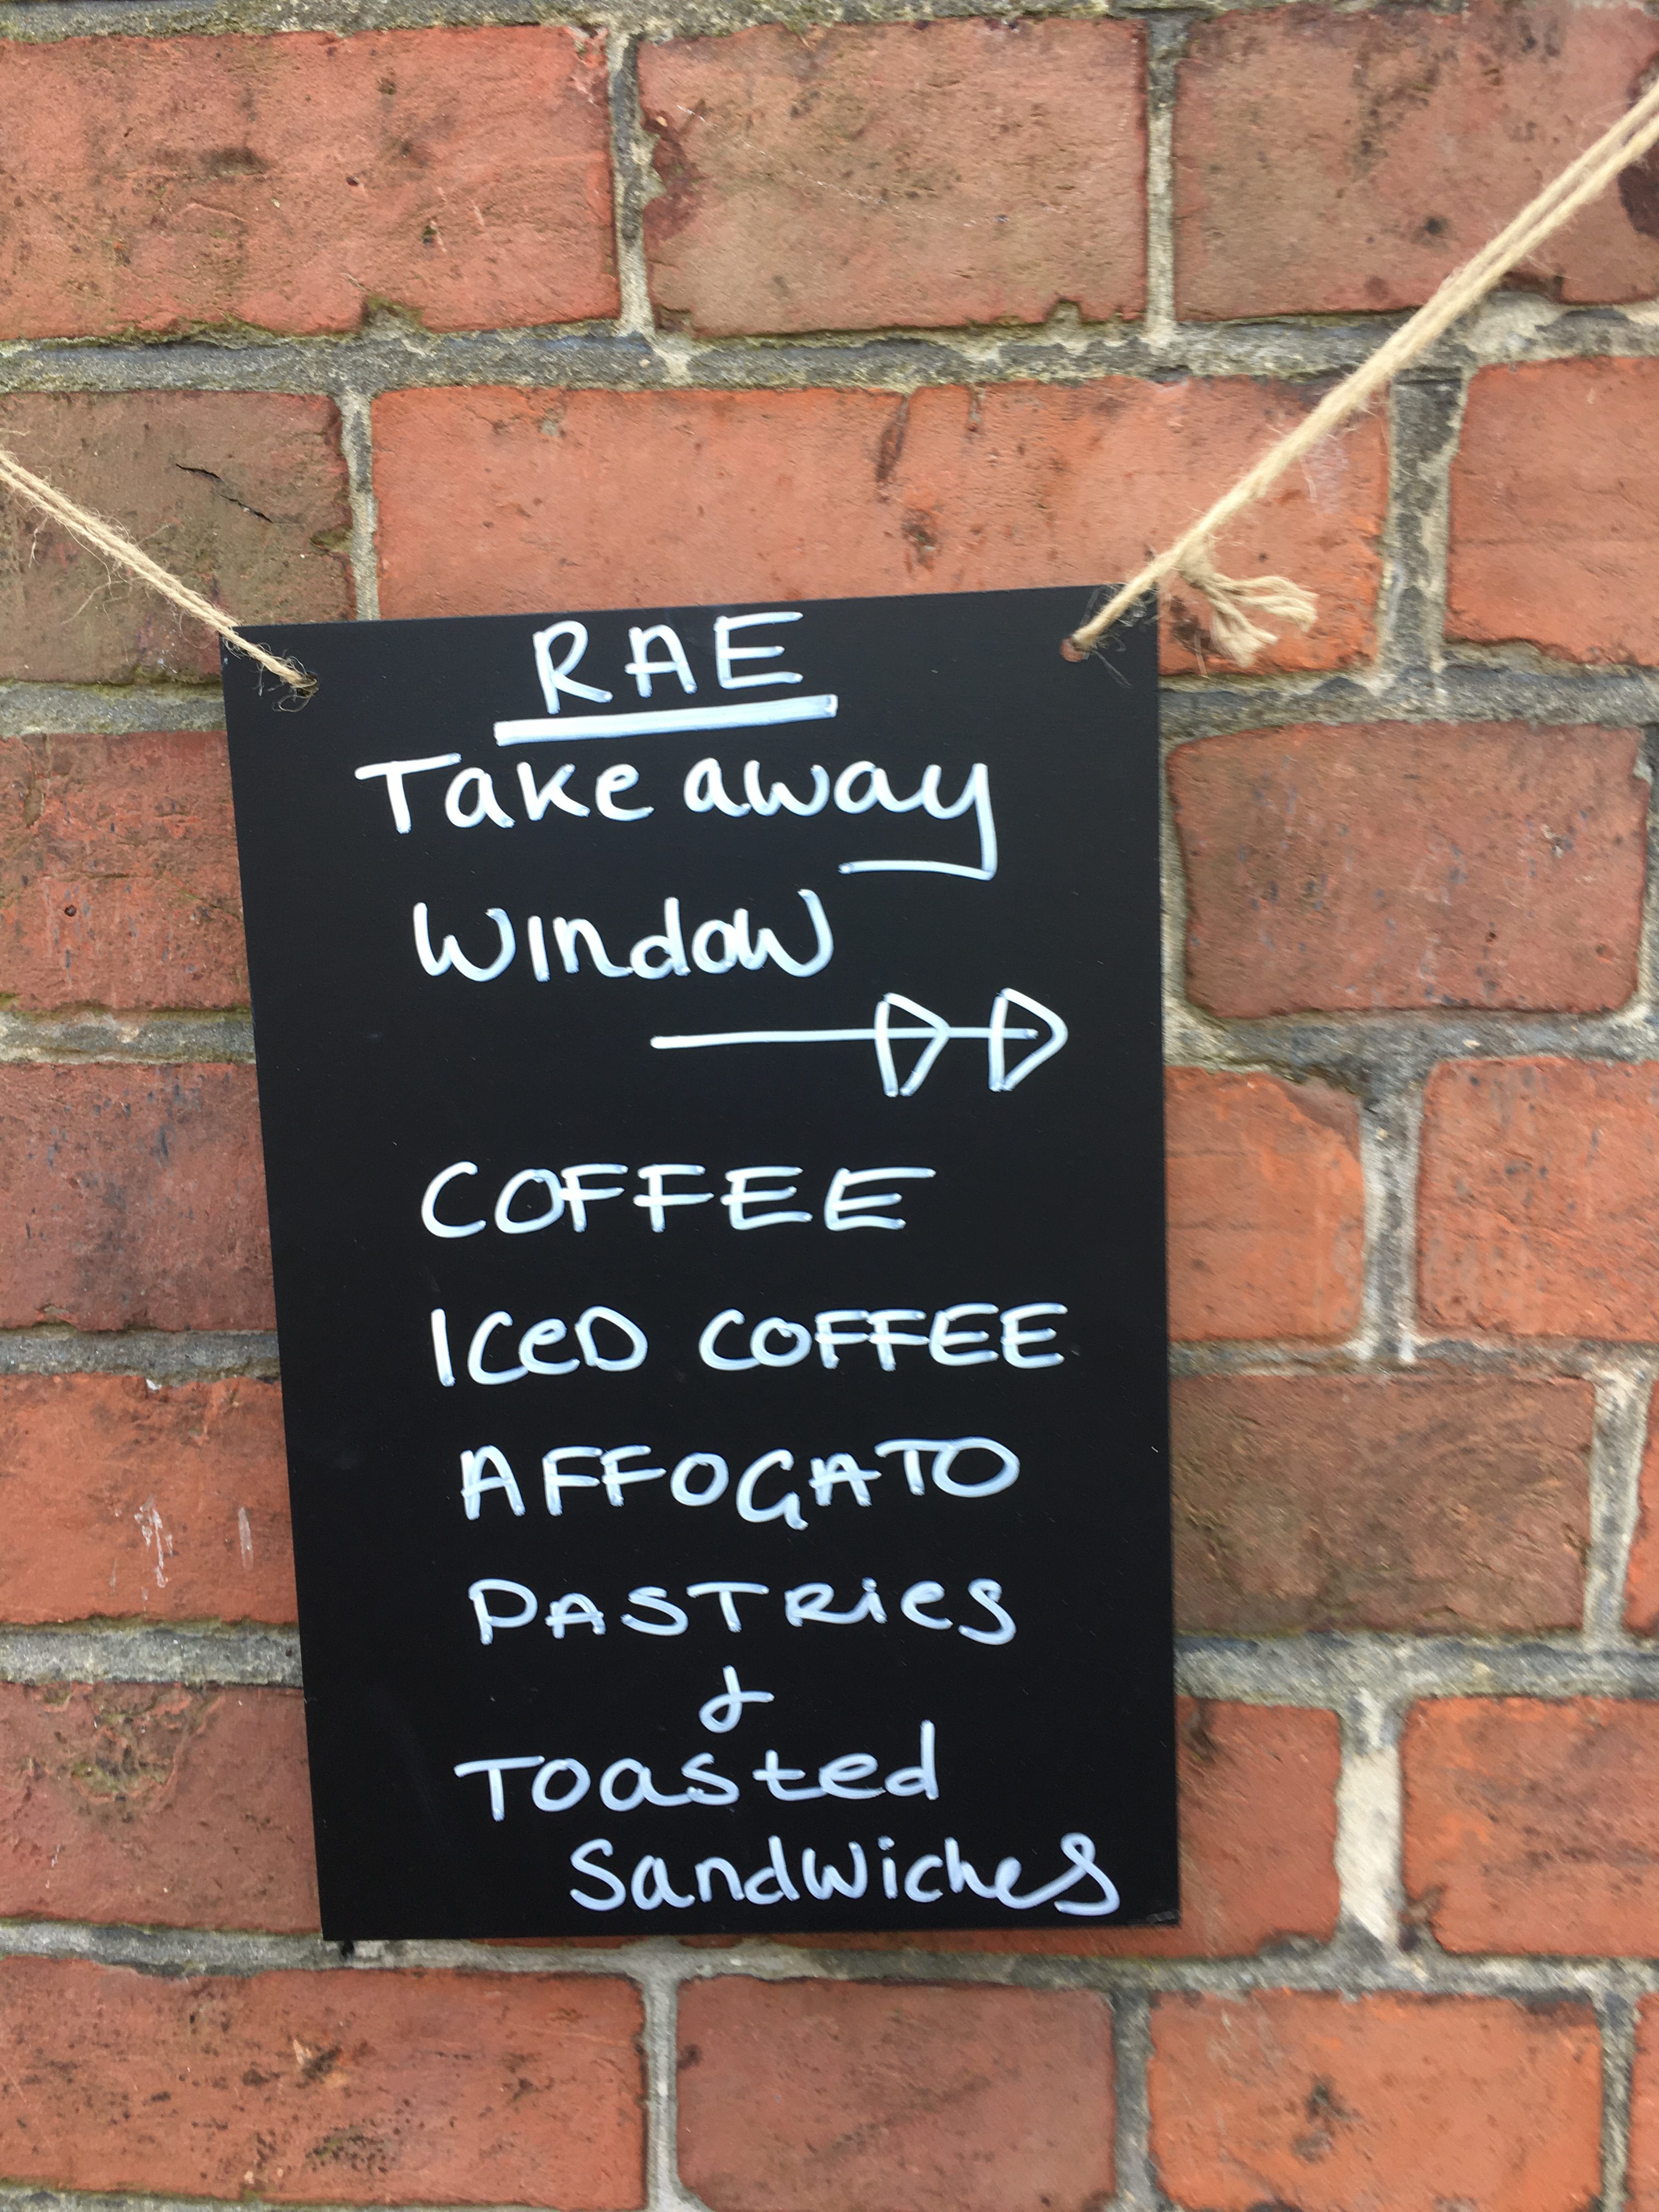 RAE
Take away
Window
COFFEE
ICeD COFFEE
AFFOGATO
PASTRieS
&
Toasted
Sandwiches